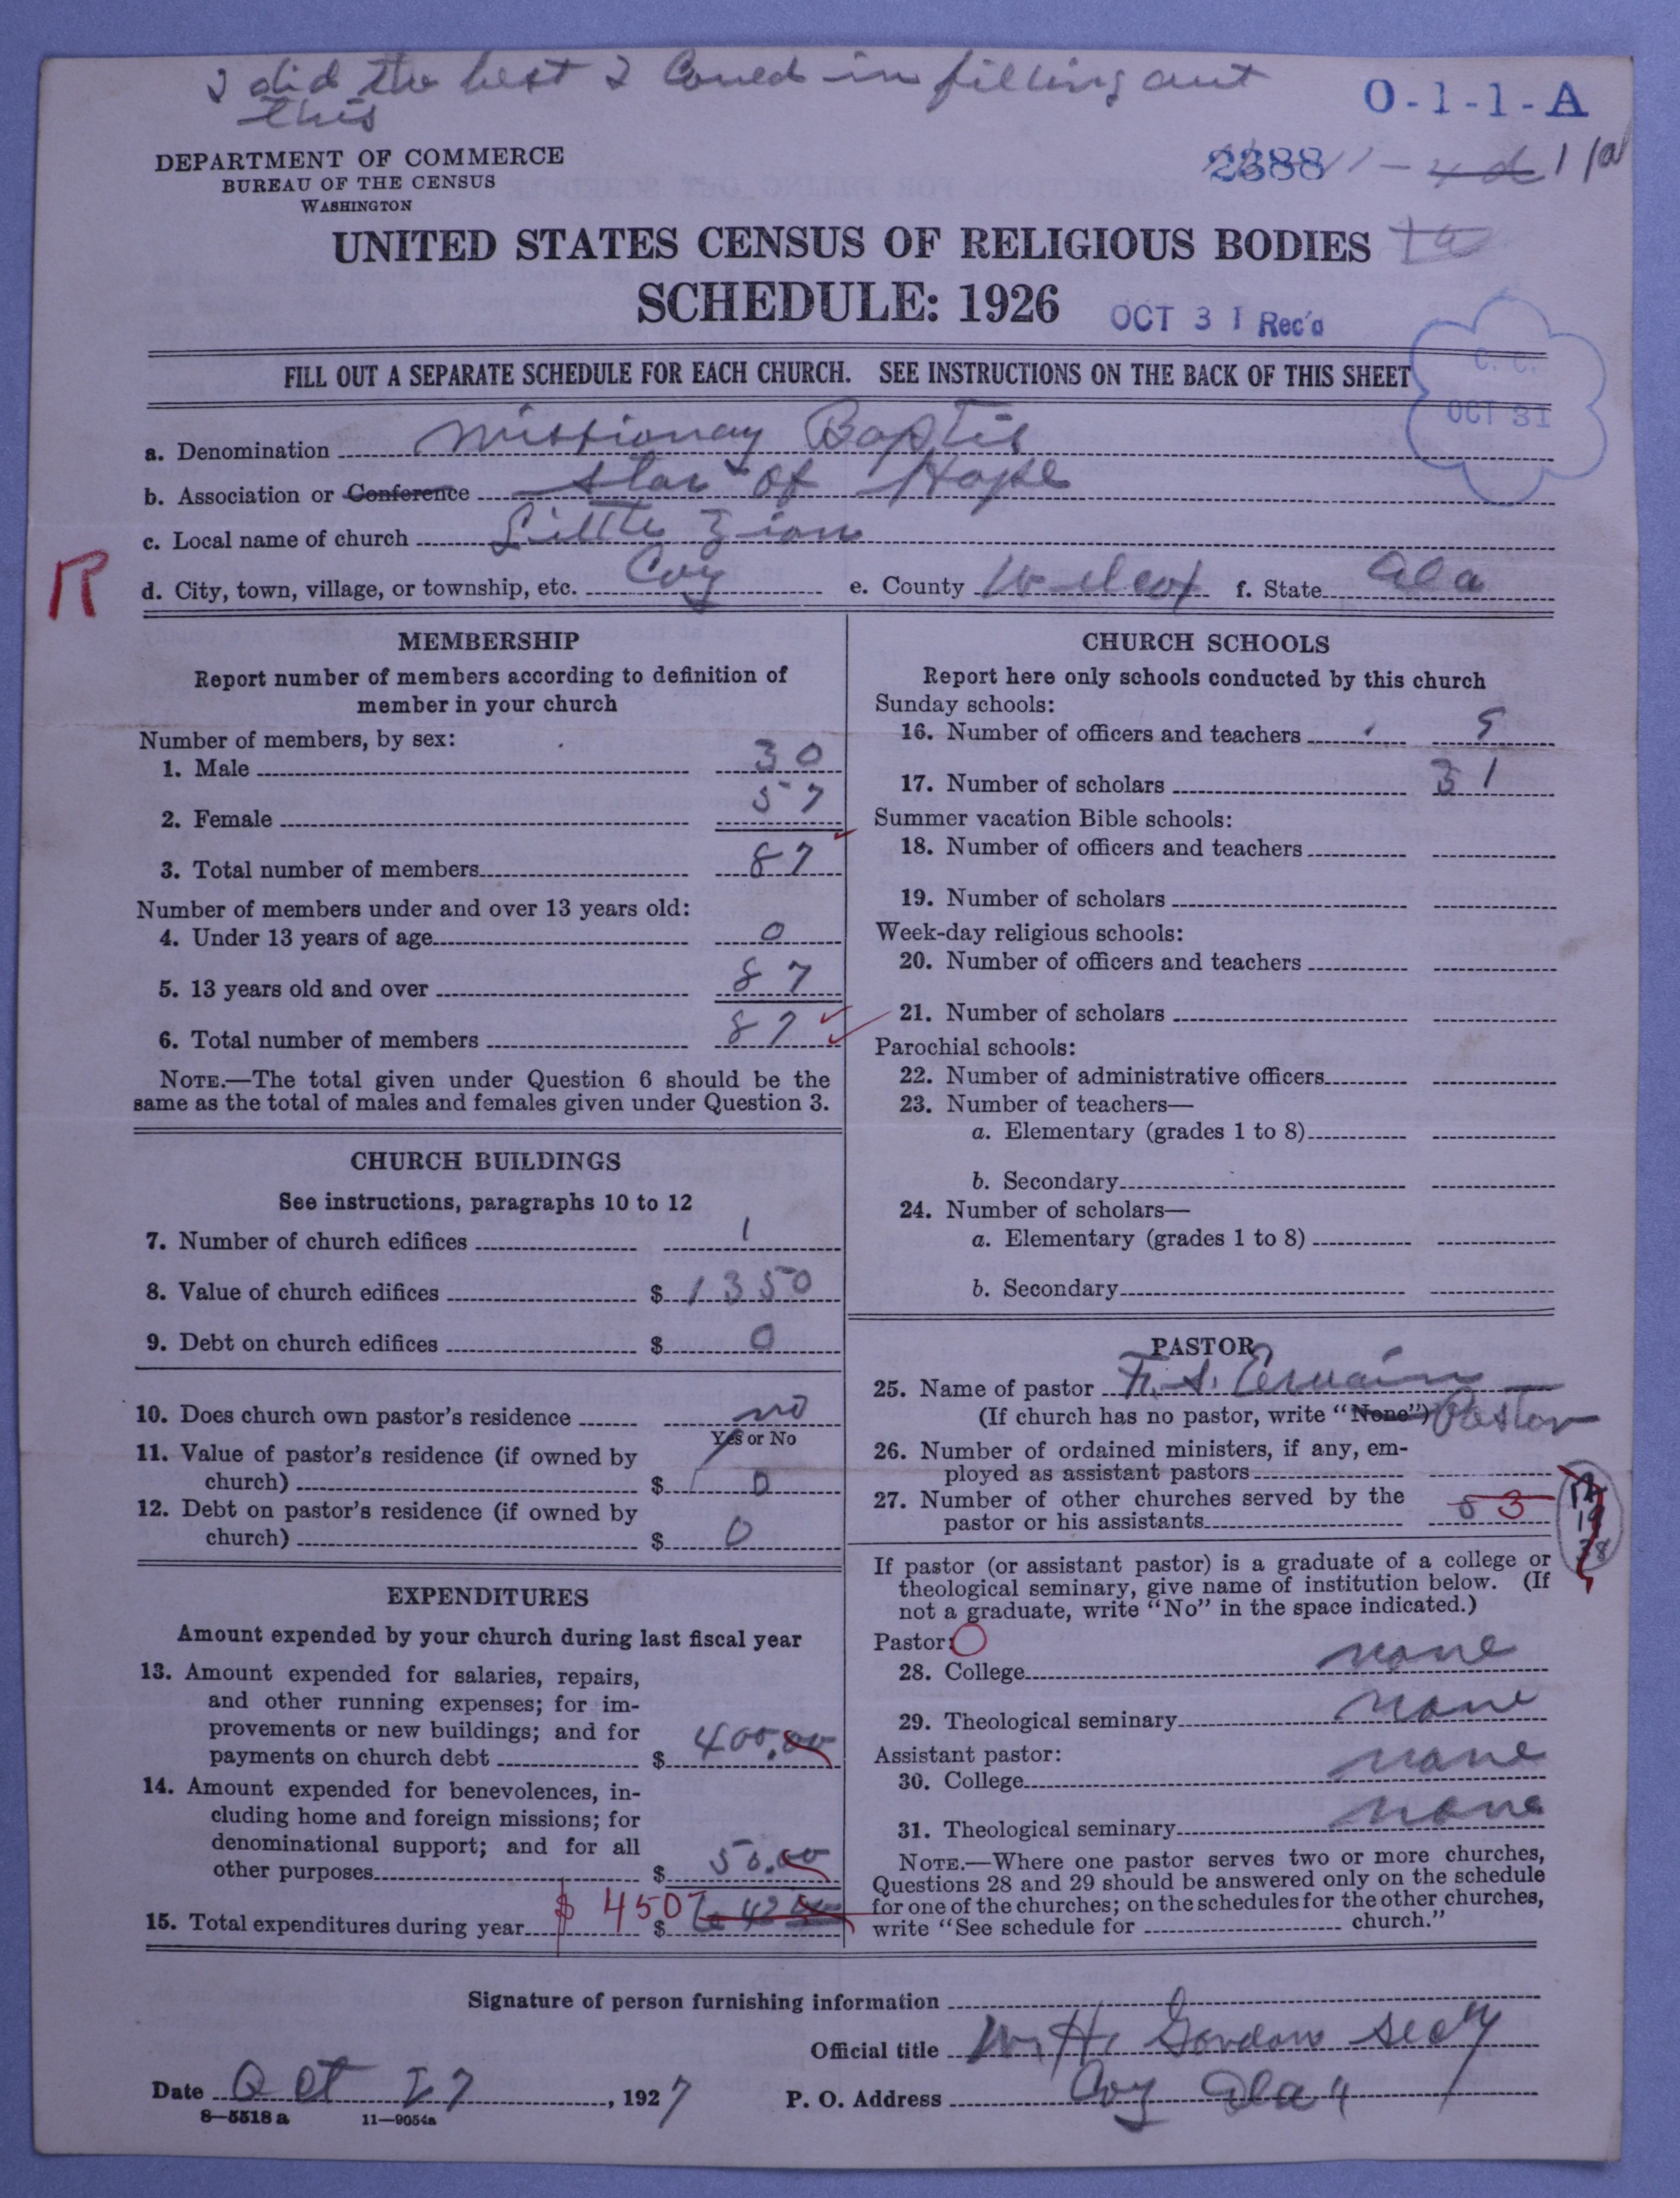 I did the best I Coued in filling out
this
O-1-1-A
DEPARTMENT OF COMMERCE
BUREAU OF THE CENSUS
WASHINGTON
2388
UNITED STATES CENSUS OF RELIGIOUS BODIES
SCHEDULE: 1926
OCT 31 Rec'd
FILL OUT A SEPARATE SCHEDULE FOR EACH CHURCH. SEE INSTRUCTIONS ON THE BACK OF THIS SHEET
C. C.
OCT 31
a. Denomination Missionay Baptis
b. Association or Conference Star of Hope
c. Local name of church Little Zion
R
d. City, town, village, or township, etc. Coy e. County Wilcox f. State Ala
MEMBERSHIP
Report number of members according to definition of
member in your church
Number of members, by sex:
1. Male 30
2. Female 57
3. Total number of members 87
Number of members under and over 13 years old:
4. Under 13 years of age 0
5. 13 years old and over 87
6. Total number of members 87
NOTE.—The total given under Question 6 should be the
same as the total of males and females given under Question 3.
CHURCH BUILDINGS
See instructions, paragraphs 10 to 12
7. Number of church edifices 1
8. Value of church edifices $ 1350
9. Debt on church edifices $ 0
10. Does church own pastor's residence no
Yes or No
11. Value of pastor's residence (if owned by
church) $ 0
12. Debt on pastor's residence (if owned by
church) $ 0
EXPENDITURES
Amount expended by your church during last fiscal year
13. Amount expended for salaries, repairs,
and other running expenses; for im-
provements or new buildings; and for
payments on church debt $ 400.00
14. Amount expended for benevolences, in-
cluding home and foreign missions; for
denominational support; and for all
other purposes $ 50.00
15. Total expenditures during year $ 450 $
CHURCH SCHOOLS
Report here only schools conducted by this church
Sunday schools:
16. Number of officers and teachers 5
17. Number of scholars 31
Summer vacation Bible schools:
18. Number of officers and teachers
19. Number of scholars
Week-day religious schools:
20. Number of officers and teachers
21. Number of scholars
Parochial schools:
22. Number of administrative officers
23. Number of teachers—
a. Elementary (grades 1 to 8)
b. Secondary
24. Number of scholars—
a. Elementary (grades 1 to 8)
b. Secondary
PASTOR
25. Name of pastor F. S. Ervain
(If church has no pastor, write "None") Pastor
26. Number of ordained ministers, if any, em-
ployed as assistant pastors
27. Number of other churches served by the
pastor or his assistants 3
If pastor (or assistant pastor) is a graduate of a college or
theological seminary, give name of institution below. (If
not a graduate, write "No" in the space indicated.)
Pastor:
28. College none
29. Theological seminary none
Assistant pastor:
30. College none
31. Theological seminary none
NOTE.—Where one pastor serves two or more churches,
Questions 28 and 29 should be answered only on the schedule
for one of the churches; on the schedules for the other churches,
write "See schedule for church."
Signature of person furnishing information
Official title W. H. Gordon Secy
Date Oct 27, 1927 P. O. Address Coy Ala
8—5518 a 11—9054a